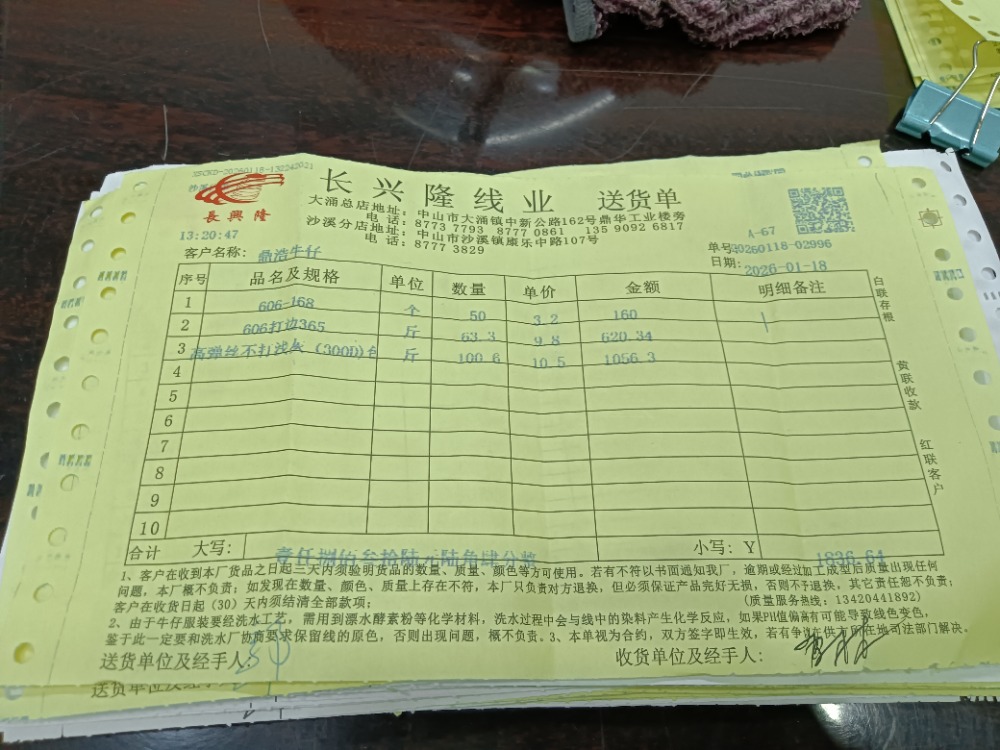 ZSCKD-20260118-132242021
沙溪
長興隆
长兴隆线业 送货单
大涌总店地址：中山市大涌镇中新公路162号鼎华工业楼旁
电话：8773 7793 8777 0861 135 9092 6817
沙溪分店地址：中山市沙溪镇康乐中路107号
电话：8777 3829
A-67
13:20:47
客户名称：鼎浩牛仔
单号20260118-02996
日期：2026-01-18
序号 品名及规格 单位 数量 单价 金额 明细备注
1 606-168 个 50 3.2 160
2 606打边365 斤 63.3 9.8 620.34
3 高弹丝不打浅灰（300D)包 斤 100.6 10.5 1056.3
4
5
6
7
8
9
10
合计 大写：壹仟捌佰叁拾陆元陆角肆分整 小写：Y 1836.64
白联存根
黄联收款
红联客户
1、客户在收到本厂货品之日起三天内须验明货品的数量、质量、颜色等方可使用。若有不符以书面通知我厂，逾期或经过加工成型后质量出现任何
问题，本厂概不负责；如发现在数量、颜色、质量上存在不符，本厂只负责对方退换，但必须保证产品完好无损，否则不予退换，其它责任恕不负责；
客户在收货日起（30）天内须结清全部款项；
(质量服务热线：13420441892)
2、由于牛仔服装要经洗水工艺，需用到漂水酵素粉等化学材料，洗水过程中会与线中的染料产生化学反应，如果PH值偏高有可能导致线色变色，
鉴于此一定要和洗水厂协商要求保留线的原色，否则出现问题，概不负责。3、本单视为合约，双方签字即生效，若有争议在供方所在地司法部门解决。
送货单位及经手人：
收货单位及经手人：
送货单位及经手人